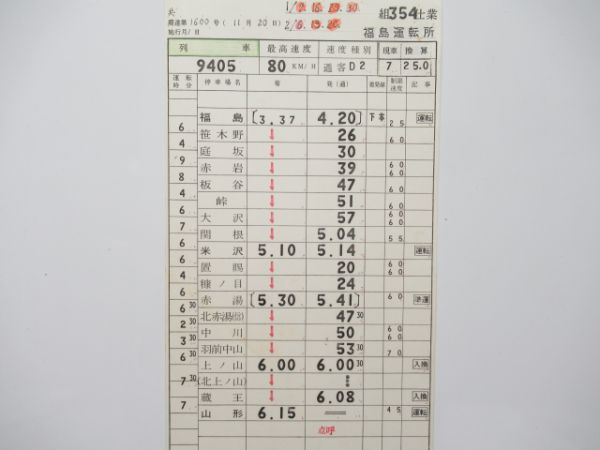 1/9.16.23.30
第1600号(11月20日)2/6.13.20. 組354仕業
施行月/日 福島運転所
列車 最高速度 速度種別 現車 換算
9405 80KM/H 通客D2 7 25.0
運転時分 停車場名 着 発(通) 着発線 制限速度 記事
福島 [3.37 4.20] 下本 25 運転
6 笹木野 ↓ 26 60
4 庭坂 ↓ 30
9 赤岩 ↓ 39 60 60
8 板谷 ↓ 47 60
4 峠 ↓ 51 60
6 大沢 ↓ 57 60 60
7 関根 ↓ 5.04 55
6 米沢 5.10 5.14 運転
6 置賜 ↓ 20 60
4 糠ノ目 ↓ 24 60
6 赤湯 [5.30 5.41] 60 準運
6 30 北赤湯(信) ↓ 47 30
2 30 中川 ↓ 50 60
3 30 羽前中山 ↓ 53 30 70
6 30 上ノ山 6.00 6.00 30 入換
(北上ノ山) ↓
7 30 蔵王 ↓ 6.08 入換
7 山形 6.15 45 運転
点呼